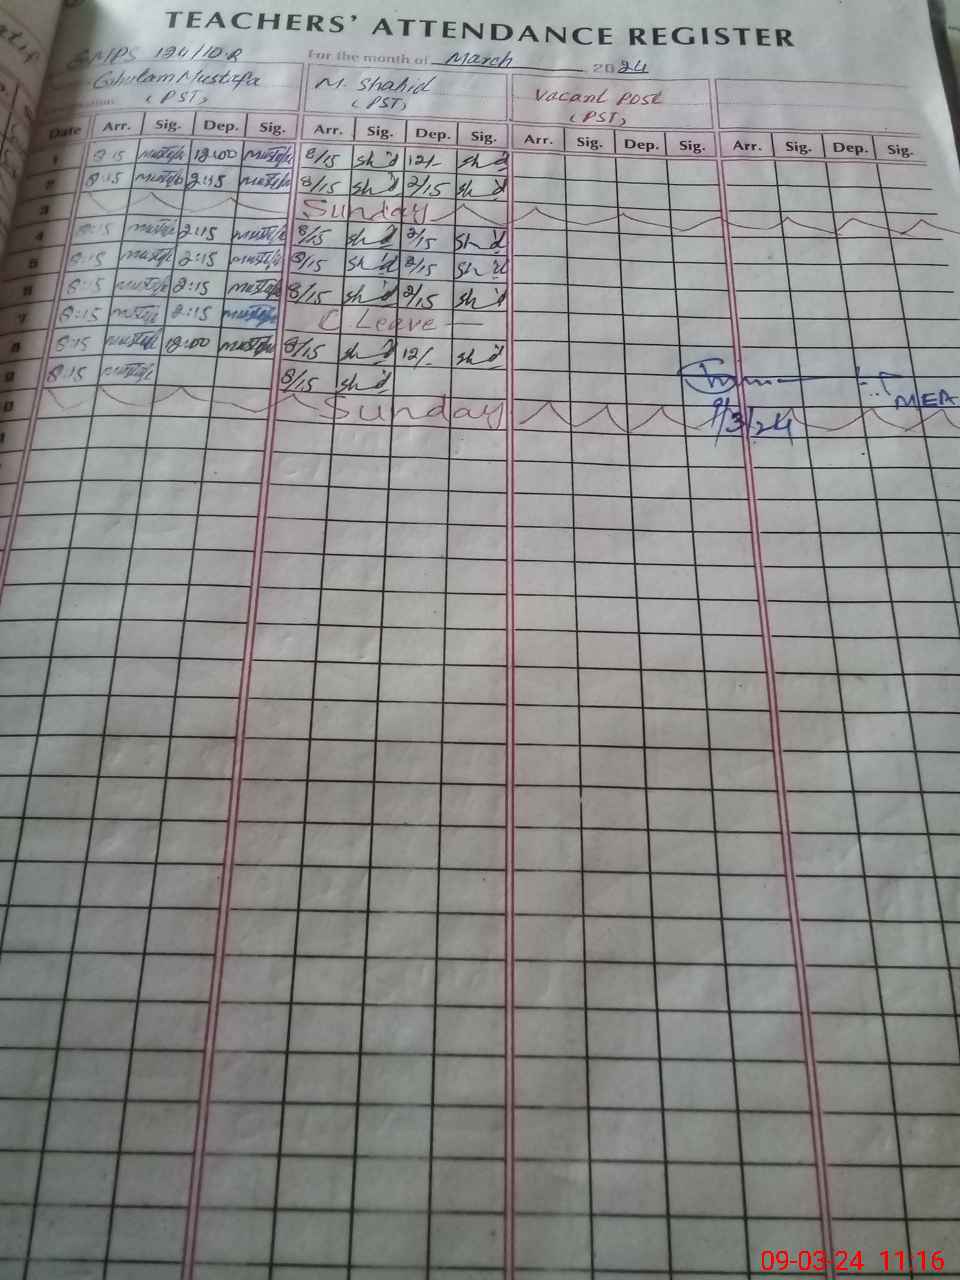 TEACHERS' ATTENDANCE REGISTER
GMPS 124/10-R For the month of March 2024
Ghulam Mustafa M. Shahid Vacant Post
(PST) (PST) (PST)
Date Arr. Sig. Dep. Sig. Arr. Sig. Dep. Sig. Arr. Sig. Dep. Sig. Arr. Sig. Dep. Sig.
1 8:15 mustafa 12:00 mustafa 8/15 sh'd 12/- sh'd
2 8:15 mustafa 2:15 mustafa 8/15 sh'd 2/15 sh'd
3 Sunday
4 8:15 mustafa 2:15 mustafa 8/15 sh'd 2/15 sh'd
5 8:15 mustafa 2:15 mustafa 8/15 sh'd 2/15 sh'd
6 8:15 mustafa 2:15 mustafa 8/15 sh'd 2/15 sh'd
7 8:15 mustafa 2:15 mustafa C Leave
8 8:15 mustafa 12:00 mustafa 8/15 sh'd 12/- sh'd
9 8:15 mustafa 8/15 sh'd
MEA
Sunday 9/3/24
09-03-24 11:16